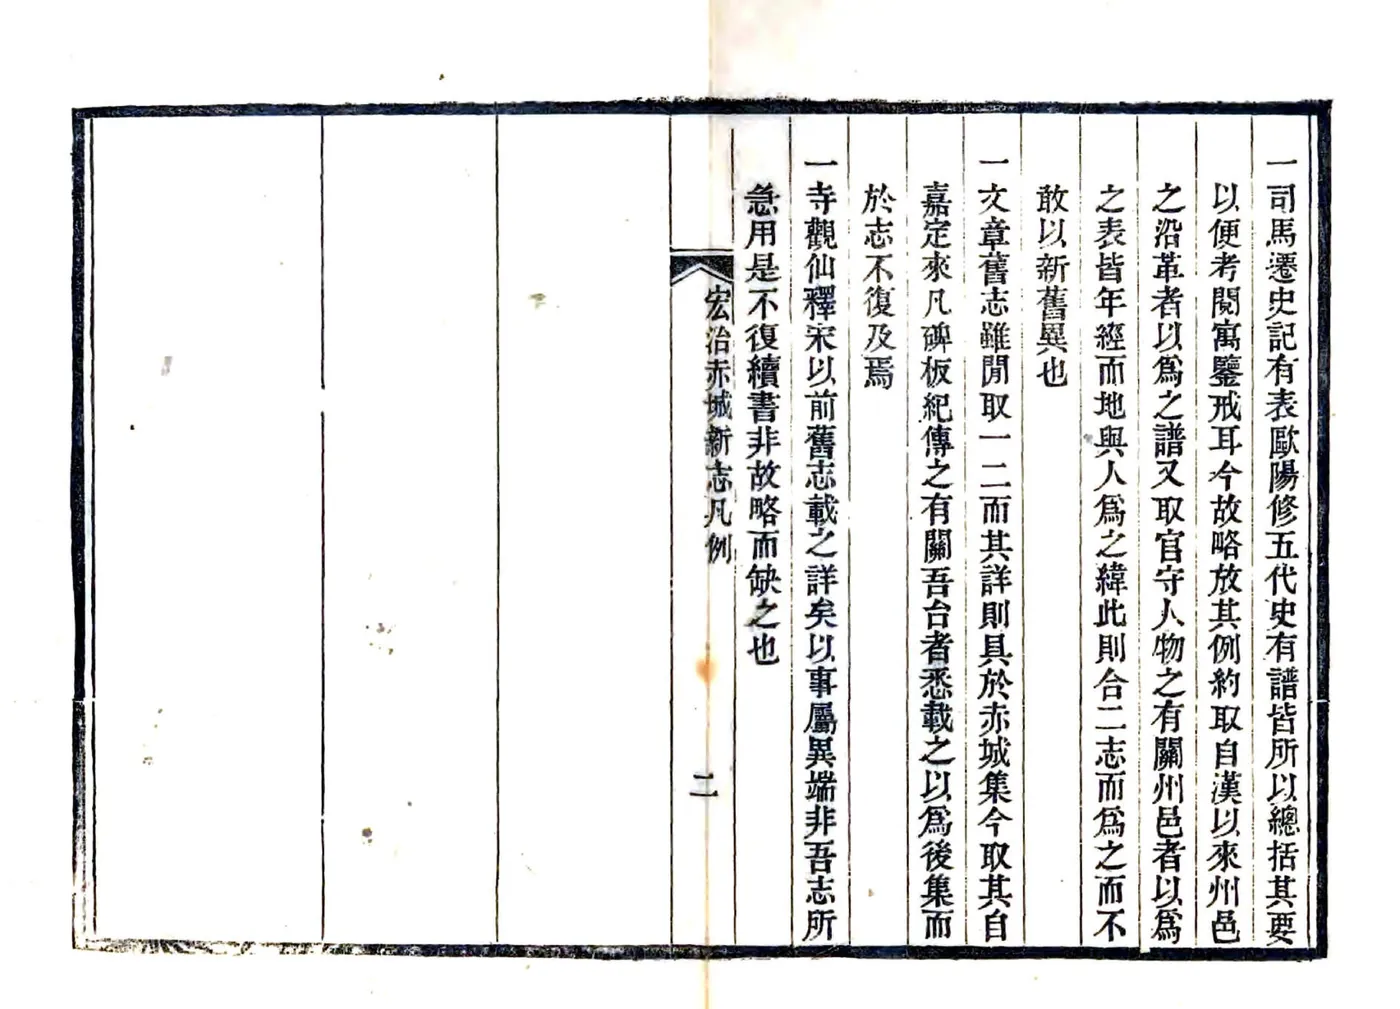 一司馬遷史記有表歐陽修五代史有譜皆所以總括其要
以便考閱寓鑒戒耳今故略放其例約取自漢以來州邑
之沿革者以爲之譜又取官守人物之有關州邑者以爲
之表皆年經而地與人爲之緯此則合二志而爲之而不
敢以新舊異也
一文章舊志雖閒取一二而其詳則具於赤城集今取其自
嘉定來凡碑板紀傳之有關吾台者悉載之以爲後集而
於志不復及焉
一寺觀仙釋宋以前舊志載之詳矣以事屬異端非吾志所
急用是不復續書非故略而缺之也
宏治赤城新志凡例
二